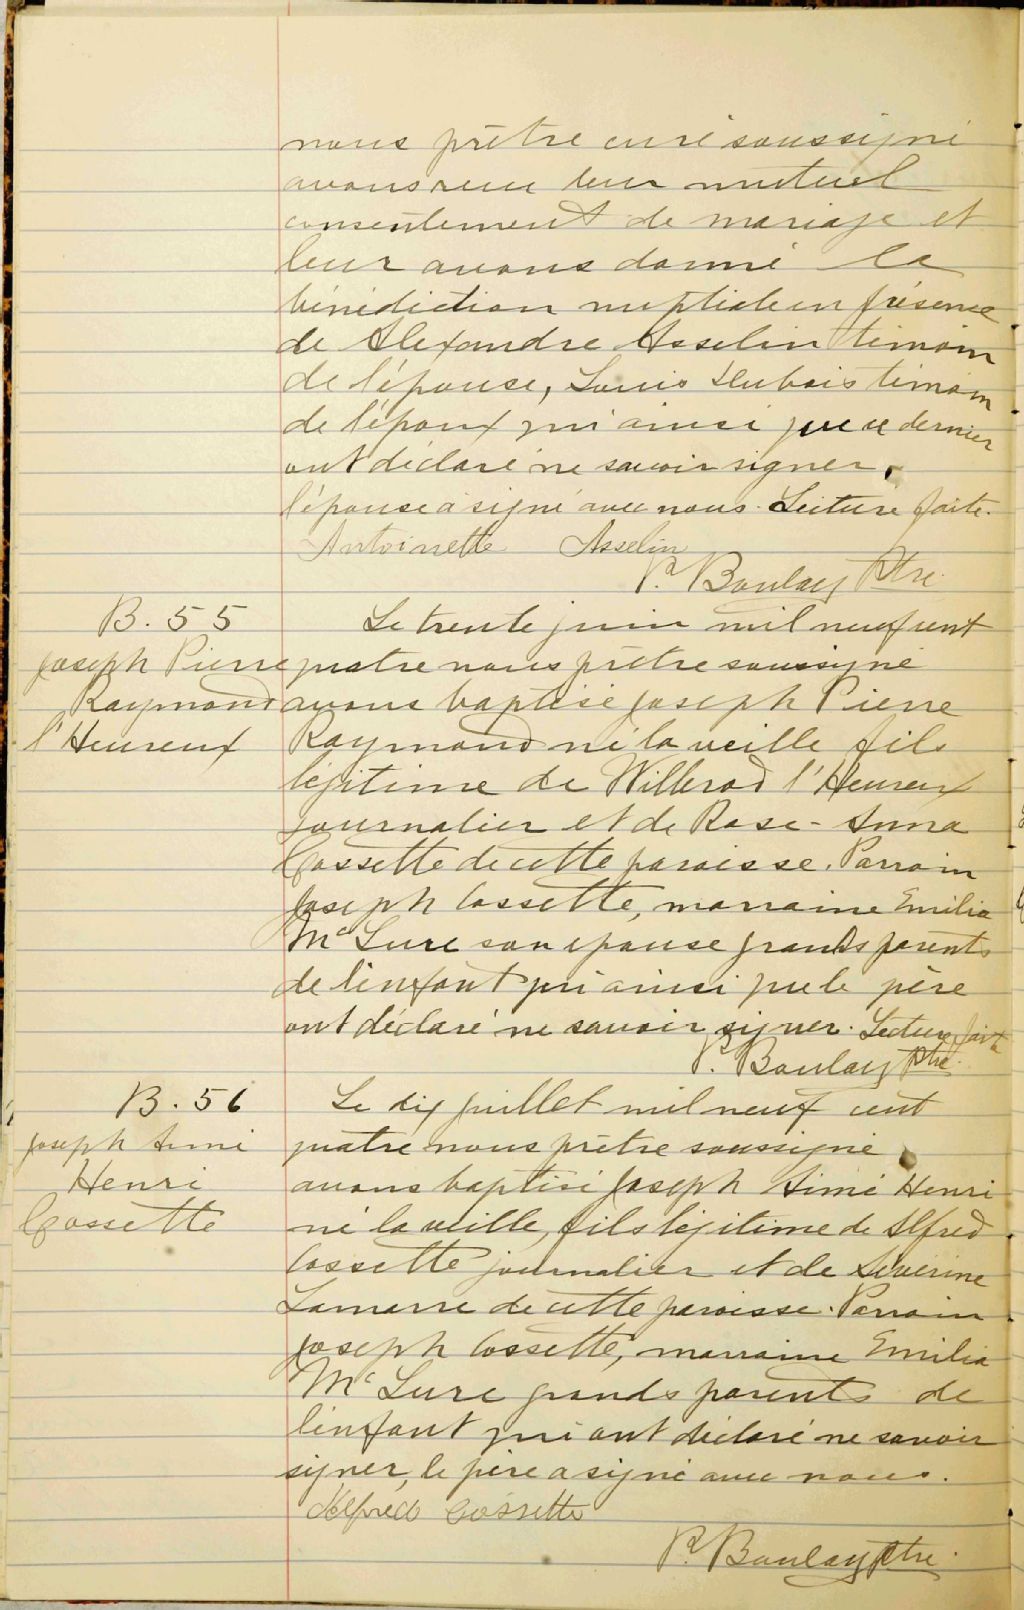 nous prêtre curé soussigné
avons reçu leur mutuel
consentement de mariage et
leur avons donné la
bénédiction nuptiale en présence
de Alexandre Asselin témoin
de l'épouse, Louis Dubois témoin
de l'époux qui ainsi que ce dernier
ont déclaré ne savoir signer.
l'épouse a signé avec nous. Lecture faite.
Antoinette Asselin
P. Boulay Ptre.
B. 55
Joseph Pierre
Raymond
l'Heureux
Le trente juin mil neuf cent
quatre nous prêtre soussigné
avons baptisé Joseph Pierre
Raymond né la veille fils
légitime de Willerod l'Heureux
journalier et de Rose-Anna
Cossette de cette paroisse. Parrain
Joseph Cossette, marraine Emilia
McLure son epouse grands parents
de l'enfant qui ainsi que le père
ont déclaré ne savoir signer. Lecture faite
P. Boulay Ptre.
B. 56
Joseph Aimé
Henri
Cossette
Le dix juillet mil neuf cent
quatre nous prêtre soussigné
avons baptisé Joseph Aimé Henri
né la veille, fils légitime de Alfred
Cossette journalier et de Séverine
Lamarre de cette paroisse. Parrain
Joseph Cossette, marraine Emilia
McLure grands parents de
l'enfant qui ont déclaré ne savoir
signer, le père a signé avec nous.
Alfred Cossette
P. Boulay Ptre.